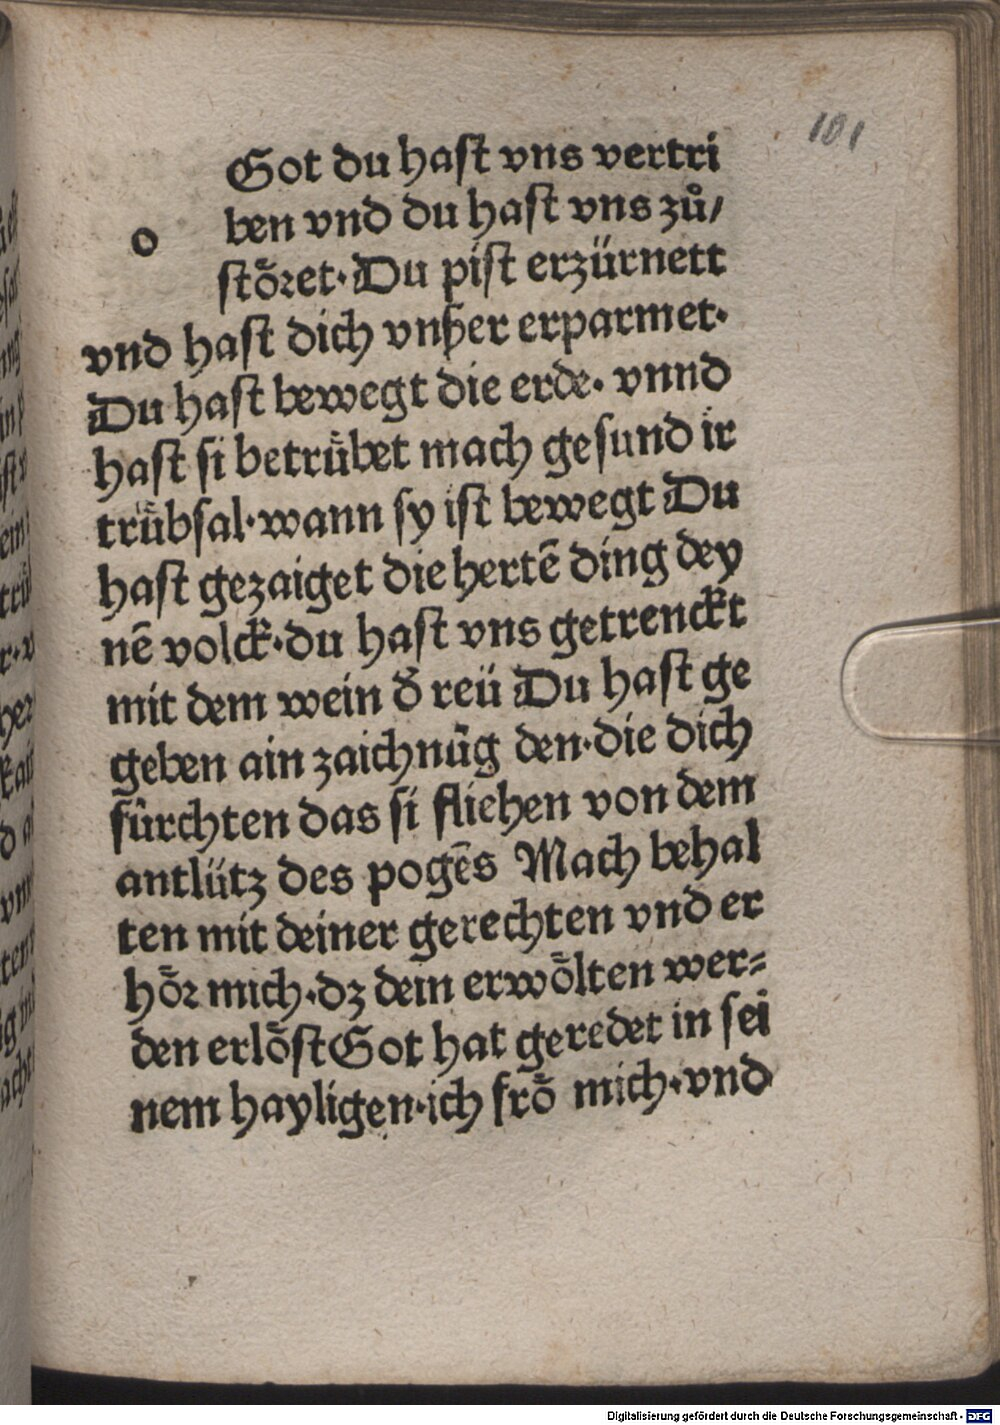 101
Got du hast vns vertri
o ben vnd du hast vns zů/
stoͤret·Du pist erzürnett
vnd hast dich vnßer erparmet·
Du hast bewegt die erde· vnnd
hast si betruͤbet mach gesund ir
truͤbsal·wann sy ist bewegt Du
hast gezaiget die hertē ding dey
nē volck·du hast vns getrenckt
mit dem wein d̛ reü Du hast ge
geben ain zaichnūg den·die dich
fürchten das si fliehen von dem
antlütz des pogēs Mach behal
ten mit deiner gerechten vnd er
hoͤr mich·dz dein erwoͤlten wer=
den erloͤst Got hat geredet in sei
nem hayligen·ich froͤ mich·vnd
Digitalisierung gefördert durch die Deutsche Forschungsgemeinschaft - DFG